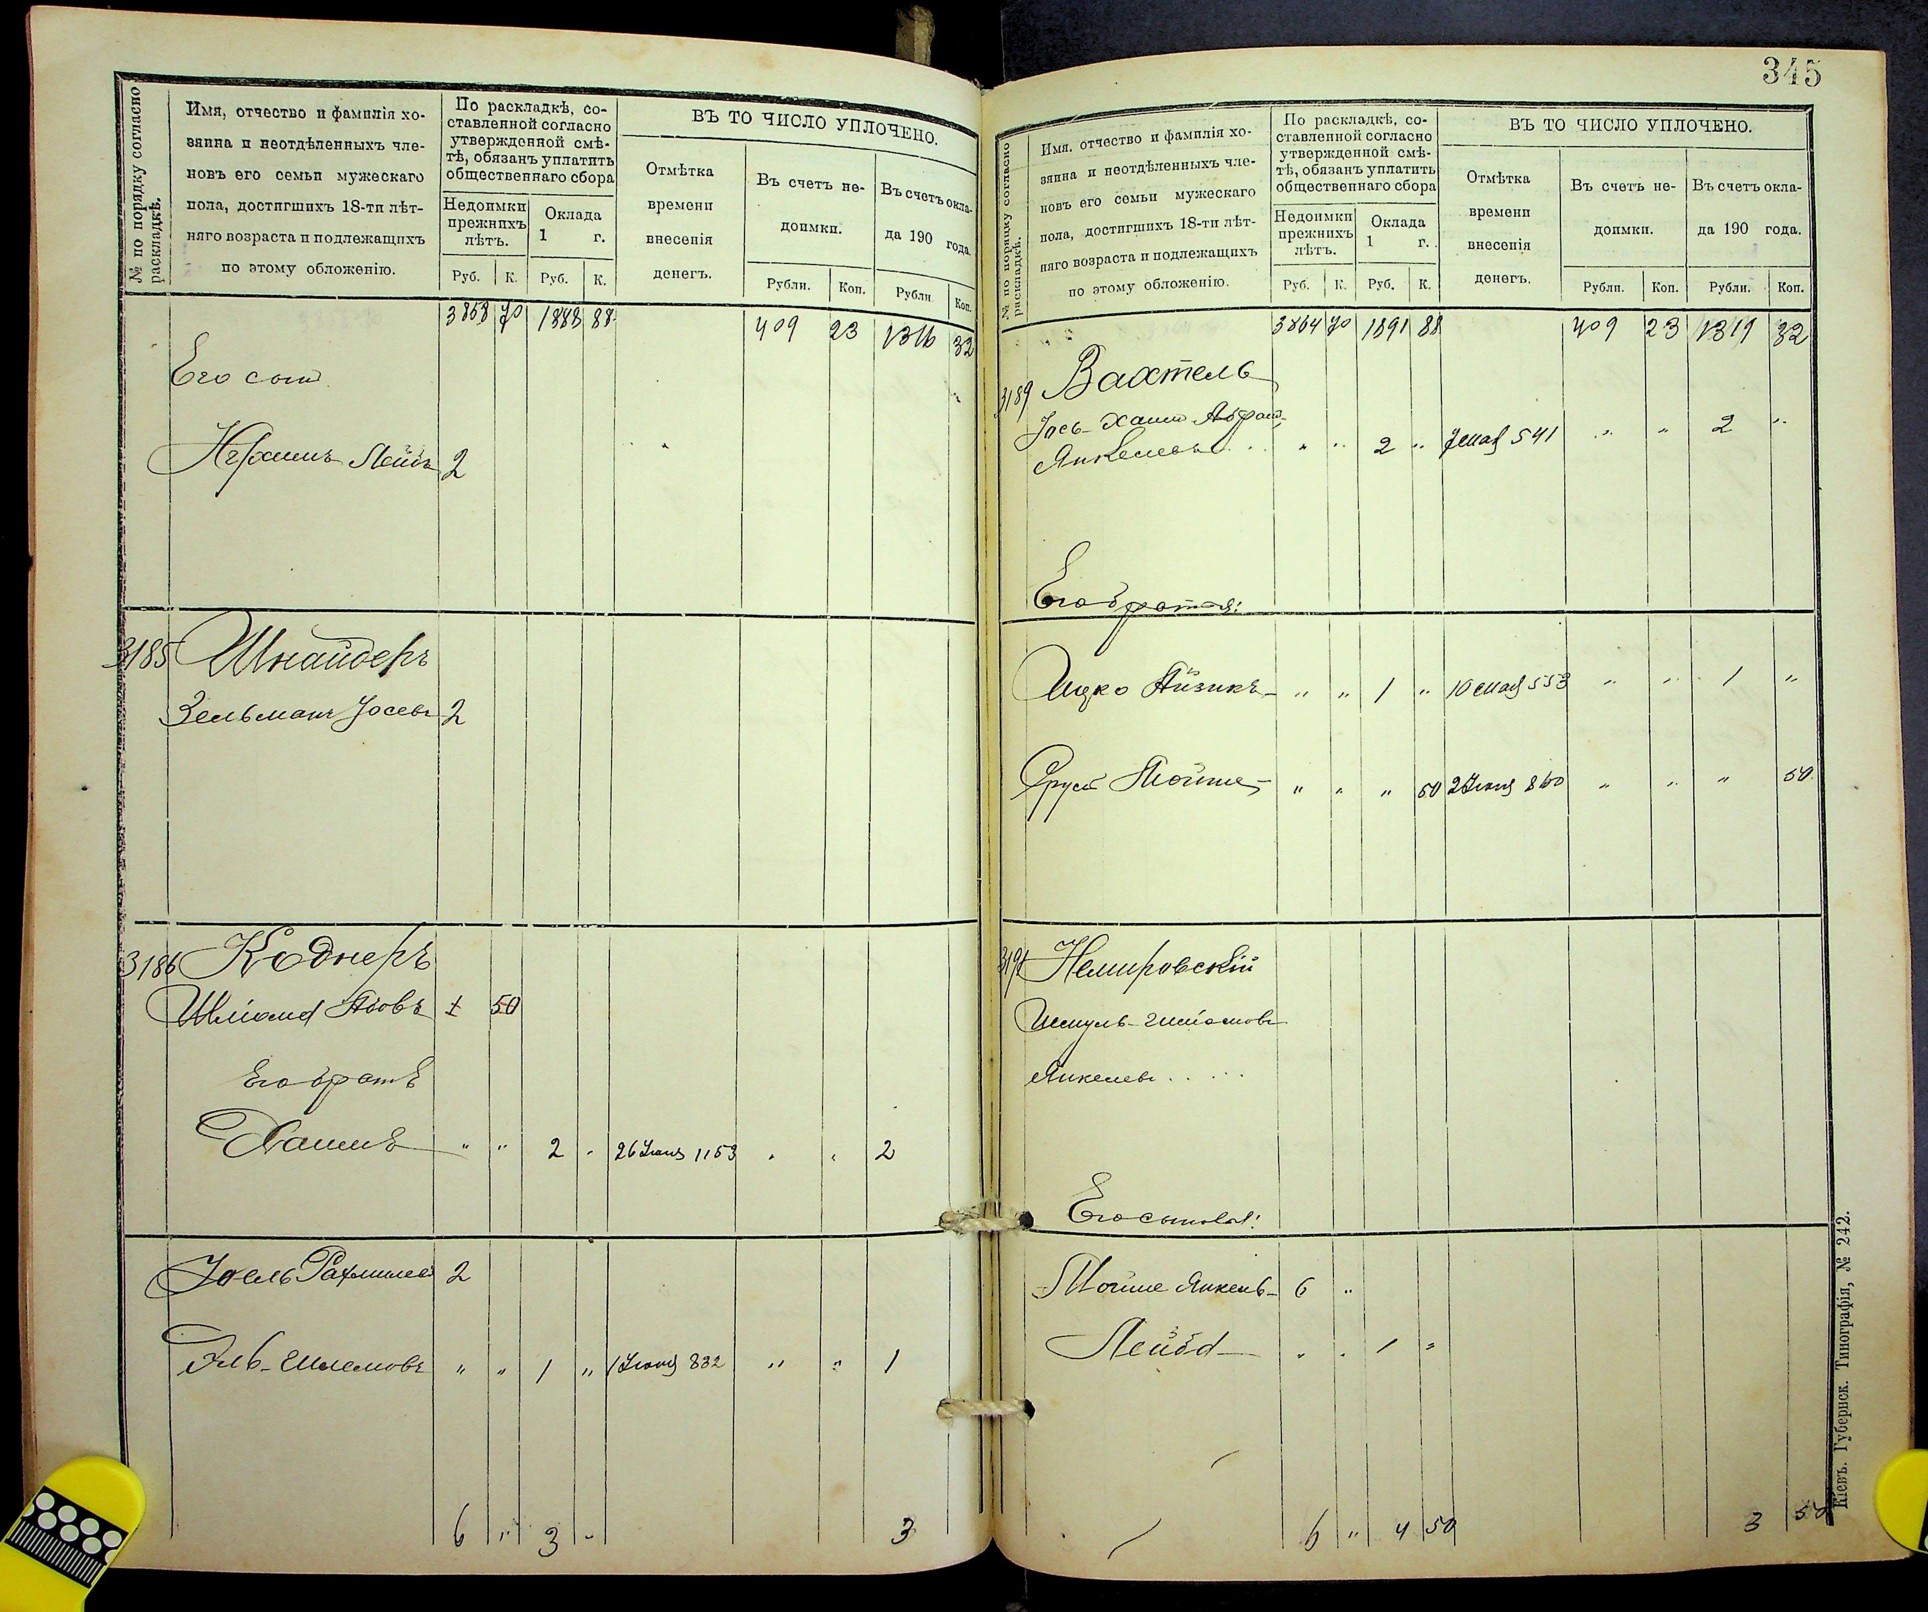 № по порядку согласно раскладкѣ.
Имя, отчество и фамилія хо-
зяина и неотдѣленныхъ чле-
новъ его семьи мужескаго
пола, достигшихъ 18-ти лѣт-
няго возраста и подлежащихъ
по этому обложенію.
По раскладкѣ, со-
ставленной согласно
утвержденной смѣ-
тѣ, обязанъ уплатить
общественнаго сбора
Недоимки прежнихъ лѣтъ.
Оклада 1 г.
Руб. К. Руб. К.
ВЪ ТО ЧИСЛО УПЛОЧЕНО.
Отмѣтка времени внесенія денегъ.
Въ счетъ не-доимки.
Въ счетъ окла-да 190 года.
Рубли. Коп. Рубли Коп.
3858 70 1888 88 409 23 1316 32
Его сынъ
Лейбъ 2
3185 Шнайдеръ
Зельманъ Іосевъ 2
3186 Коднеръ
1 50
Его братъ
Хаимъ " " 2 " 26 Іюня 1153 " " 2
Іоель Рахмилевъ 2
" " 1 " 1 Іюня 832 " " 1
6 " 3 " 3
345
№ по порядку согласно раскладкѣ.
Имя, отчество и фамилія хо-
зяина и неотдѣленныхъ чле-
новъ его семьи мужескаго
пола, достигшихъ 18-ти лѣт-
няго возраста и подлежащихъ
по этому обложенію.
По раскладкѣ, со-
ставленной согласно
утвержденной смѣ-
тѣ, обязанъ уплатить
общественнаго сбора
Недоимки прежнихъ лѣтъ.
Оклада 1 г.
Руб. К. Руб. К.
ВЪ ТО ЧИСЛО УПЛОЧЕНО.
Отмѣтка времени внесенія денегъ.
Въ счетъ не-доимки.
Въ счетъ окла-да 190 года.
Рубли. Коп. Рубли. Коп.
3864 70 1891 88 409 23 1319 32
3189 Вахтель
Іось-Хаимъ
Янкелевъ " " 2 " 7 мая 541 " " 2 "
Его братья:
Ицко Айзикъ " " 1 " 10 мая 553 " " 1 "
Мойше " " " 50 2 Іюня 860 " " " 50
3191 Немировскій
Янкелевъ
Его сыновья:
Мойше Янкель 6 "
Лейба " " 1 "
6 " 4 50 3 50
Кіевъ. Губернск. Типографія, № 242.